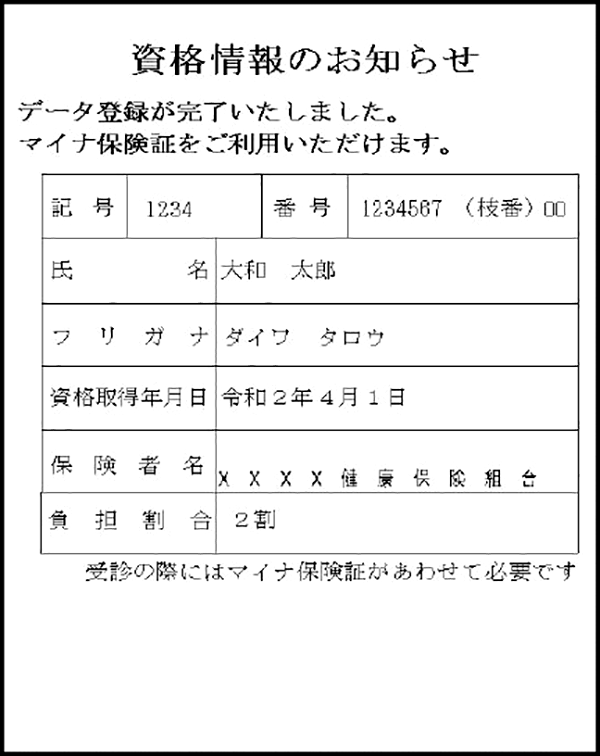 資格情報のお知らせ
データ登録が完了いたしました。
マイナ保険証をご利用いただけます。
記号 1234 番号 1234567 (枝番)00
氏名 大和 太郎
フリガナ ダイワ タロウ
資格取得年月日 令和2年4月1日
保険者名 XXXX健康保険組合
負担割合 2割
受診の際にはマイナ保険証があわせて必要です